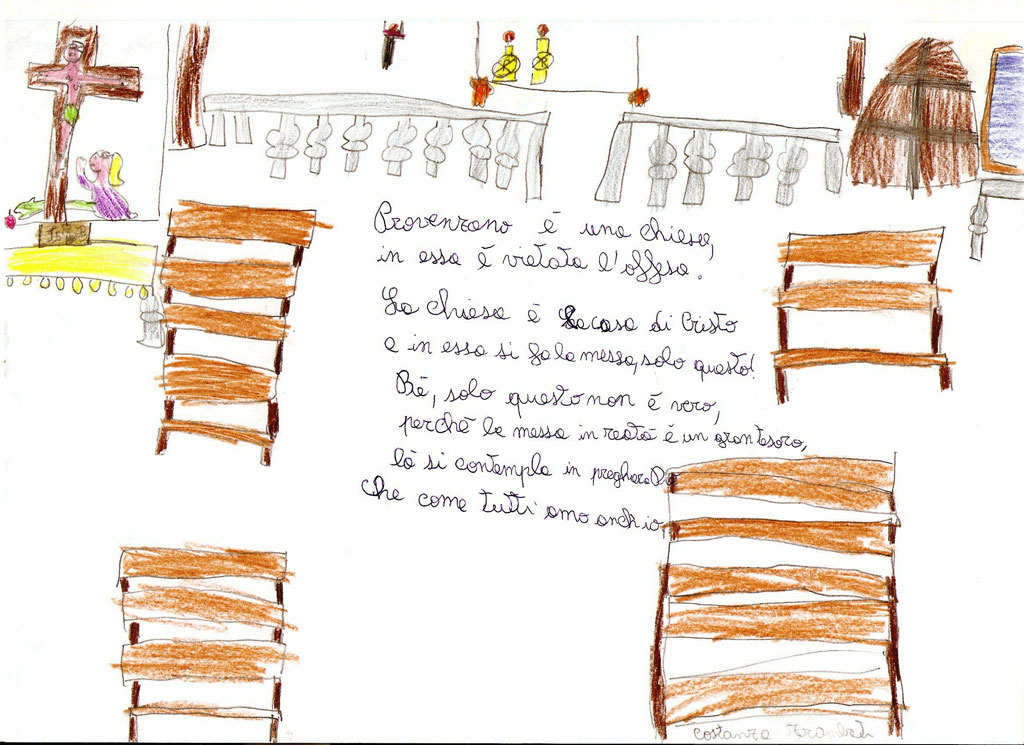 Provenzano è una chiesa,
in essa è vietata l'offesa.
La chiesa è la casa di Cristo
e in essa si fa la messa, solo questo!
Bé, solo questo non è vero,
perché la messa in reatà è un gran tesoro,
là si contempla in preghiera Di
che come tutti amo anch'io,
Costanza